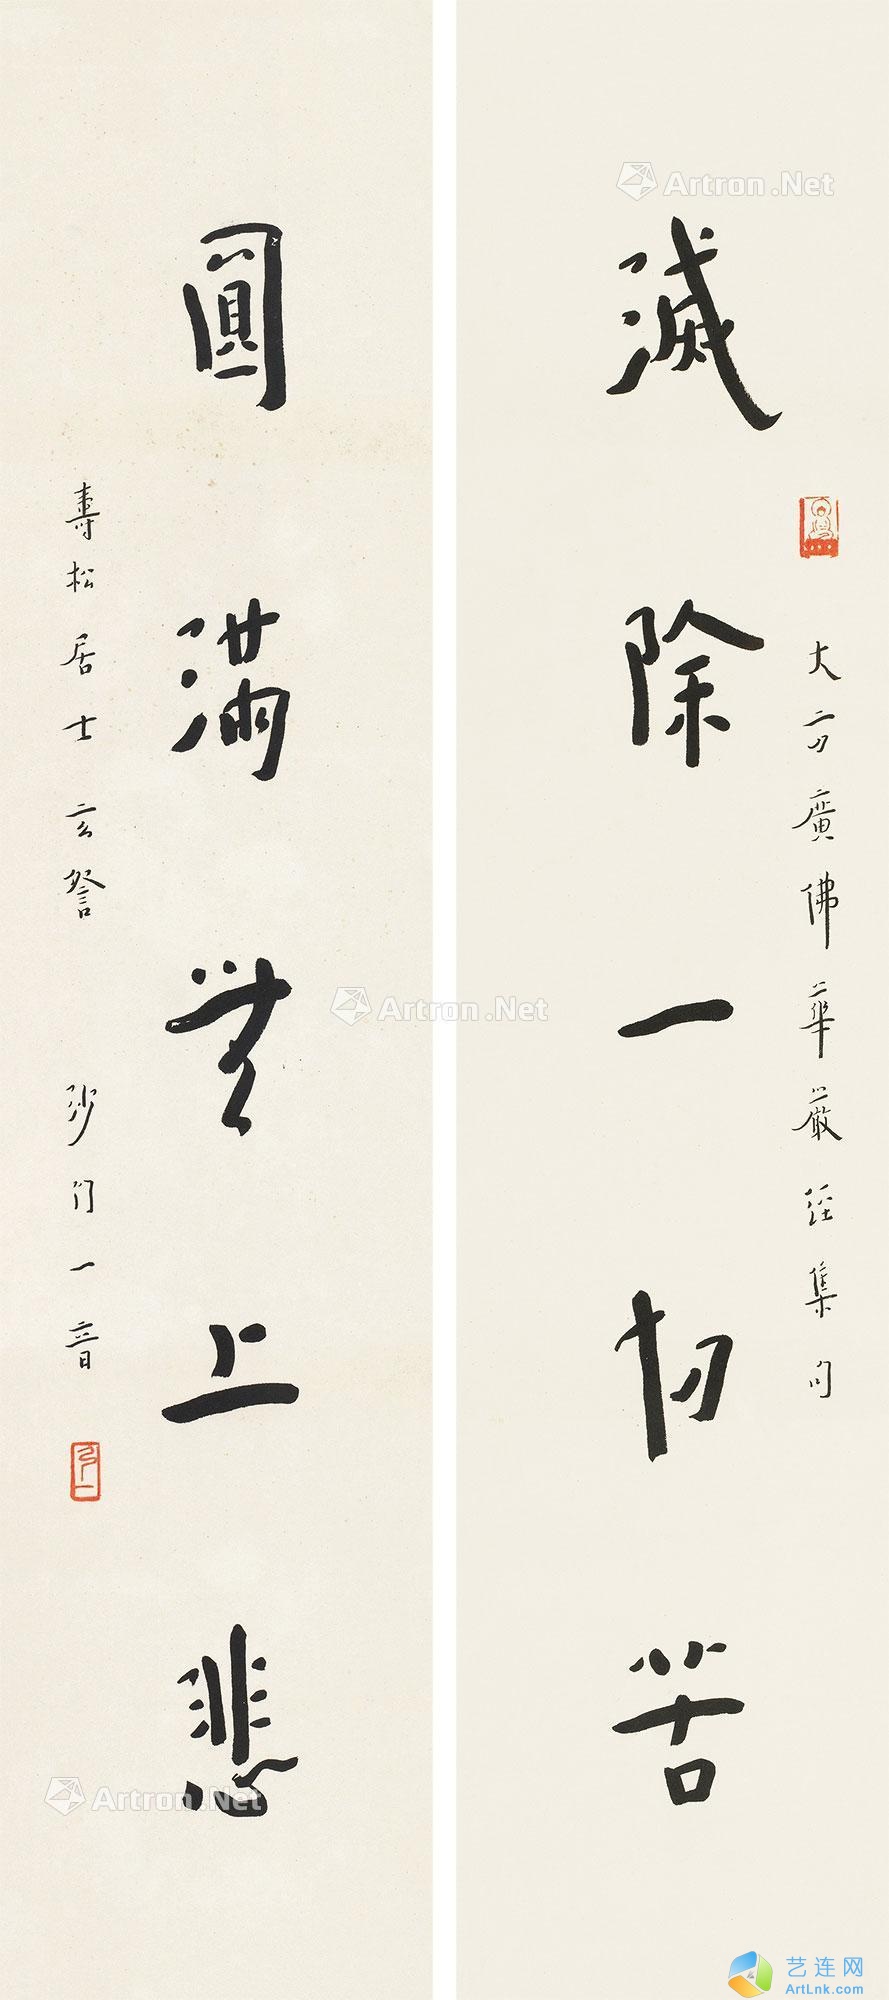 滅除一切苦
大方廣佛華嚴經集句
圓滿無上悲
壽松居士玄詧
沙門一音
Artron.Net
Artron.Net
Artron.Net
艺连网
ArtLnk.com